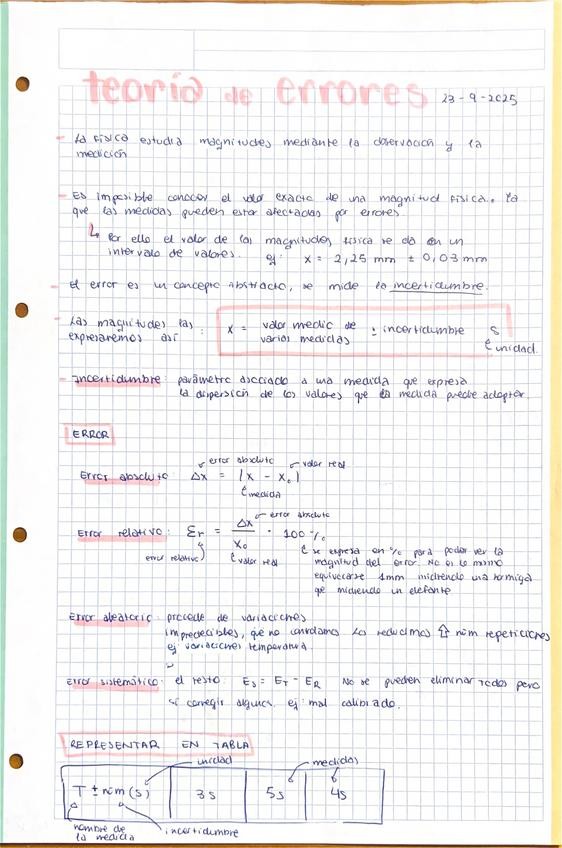 teoría de errores 23-9-2025
- La Física estudia magnitudes mediante la observación y la
medición
- Es imposible conocer el valor exacto de una magnitud Física. Ya
que las medidas pueden estar afectadas por errores.
↳ Por ello el valor de las magnitudes física se da en un
intervalo de valores. ej: x = 2,25 mm ± 0,03 mm
- El error es un concepto abstracto, se mide la incertidumbre.
- Las magnitudes las : x = valor medio de ± incertidumbre s
expresaremos así varias medidas unidad.
- Incertidumbre: parámetro asociado a una medida que expresa
la dispersión de los valores que la medida puede adoptar
ERROR
error absoluto valor real
Error absoluto: Δx = |x - x₀|
medida
error absoluto
Error relativo: Ɛr = Δx / x₀ · 100 %
error relativo valor real
se expresa en % para poder ver la
magnitud del error. No es lo mismo
equivocarse 1mm midiendo una hormiga
qe midiendo un elefante
Error aleatorio: procede de variaciones
impredecibles, que no controlamos Los reducimos ⇧ núm repeticiones
ej variaciones temperatura.
Error sistemático: el resto: Es = ET - ER No se pueden eliminar todos pero
sí corregir algunos. ej: mal calibrado.
REPRESENTAR EN TABLA
unidad medidas
T ± núm (s) 3s 5s 4s
nombre de incertidumbre
la medida